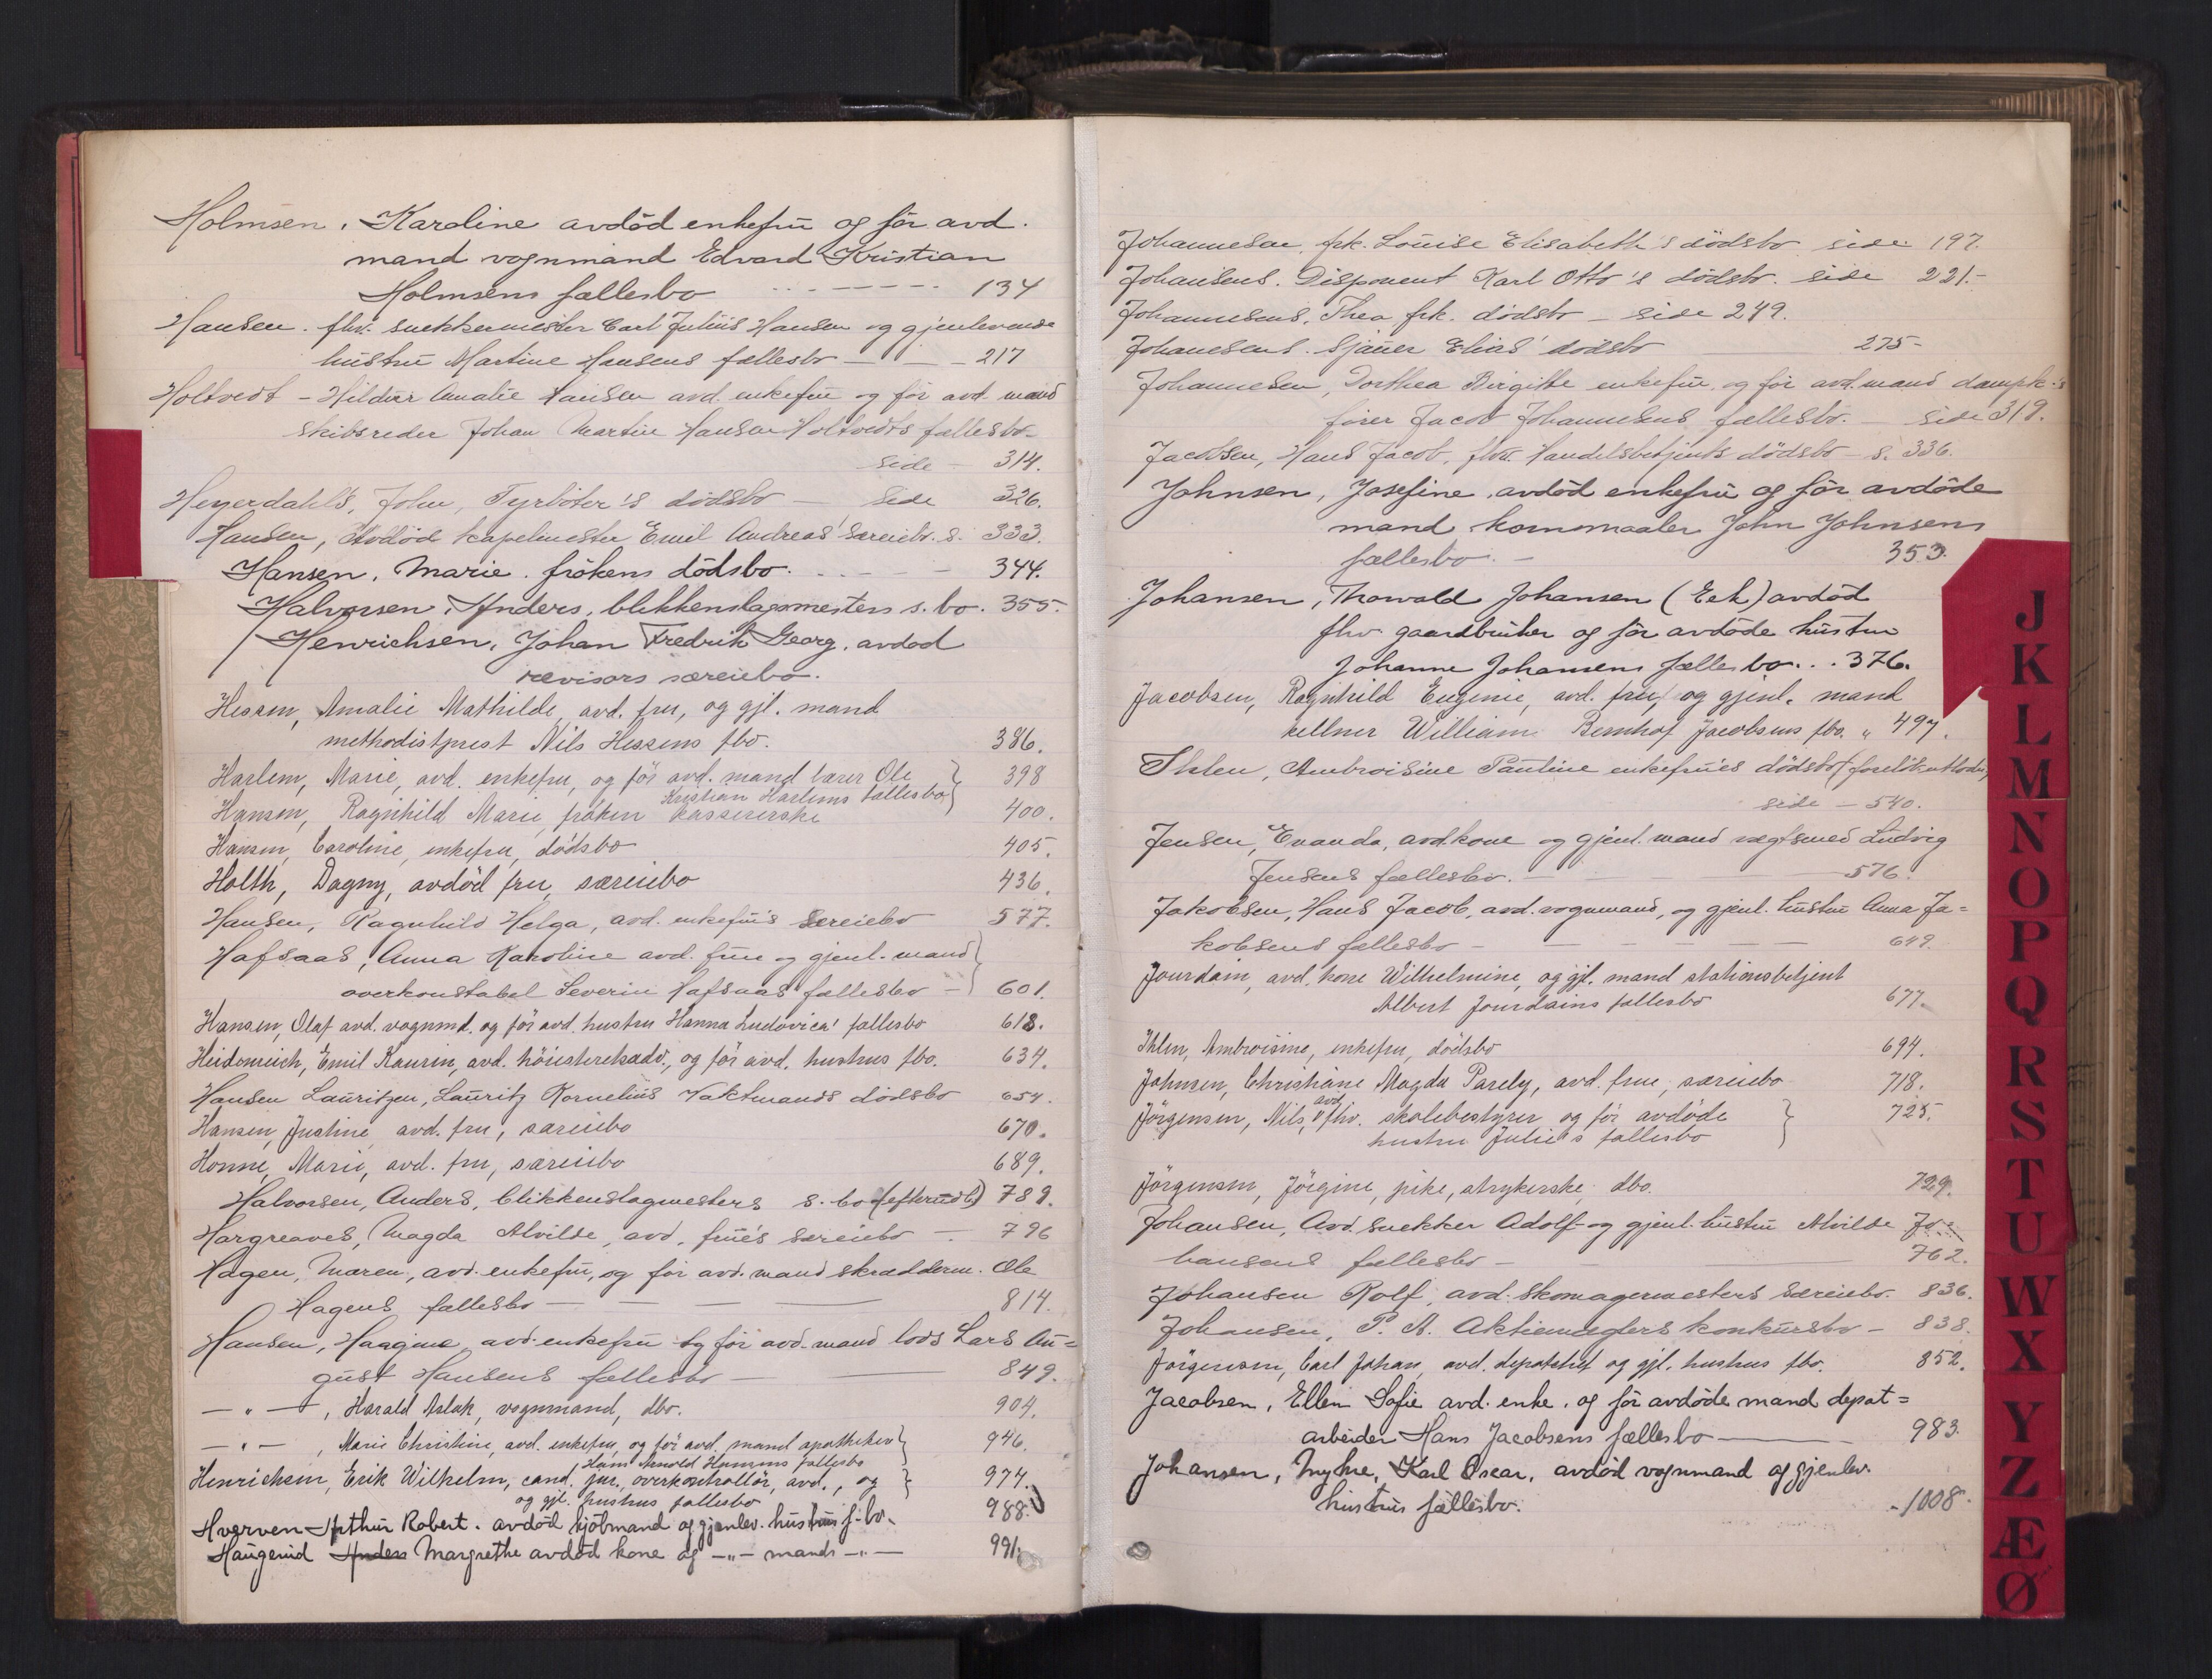 Holmsen, Karoline avdöd enkefru og för avd.
mand vognmand Edvard Kristian
Holmsens fællesbo 134
Hansen, fhv. snekkermester Carl Julius Hansen og gjenlevende
hustru Martine Hansens fællesbo 217
Holtvedt - Hildur Amalie Hansen avd. enkefru og för avd. mand
skibsreder Johan Martin Hansen Holtvedts fællesbo
side 314.
Heyerdahls, John, Fyrböter's dödsbo side 326.
Hansen, Avdöd kapelmester Emil Andreas' særeiebo. s. 333.
Hansen, Marie. frökens dödsbo. 344.
Halvorsen, Anders, blikkenslagermesters s. bo. 355.
Henrichsen, Johan Fredrik Georg, avdöd
revisors særeiebo.
Hessen, Amalie Mathilde, avd. fru, og gjl. mand
methodistprest Nils Hessens fbo. 386.
Harlem, Marie, avd. enkefru, og för avd. mand lærer Ole 398
Kristian Harlems fællesbo
Hansen, Ragnhild Marie, fröken kassererske 400.
Hansen, Caroline, enkefru, dödsbo 405.
Holth, Dagny, avdöd fru, særeiebo 436.
Hansen, Ragnhild Helga, avd. enkefru's særeiebo 577.
Hafsaas, Anna Karoline avd. frue og gjenl. mand
overkonstabel Severin Hafsaas fællesbo 601.
Hansen, Olaf avd. vognmd. og för avd. hustru Hanna Ludovica' fællesbo 618.
Heidenreich, Emil Kaurin, avd. höiesteretsadv., og för avd. hustrus fbo. 634.
Hansen Lauritzen, Lauritz Kornelius Vaktmands dödsbo 654.
Hansen, Justine, avd. fru, særeiebo 670.
Honne, Marie, avd. fru, særeiebo 689.
Halvorsen, Anders, blikkenslagmesters s. bo (efterutdl.) 789.
Hargreaves, Magda Alvilde, avd. frue's særeiebo 796
Hagen, Maren, avd. enkefru, og för avd. mand skrædderm. Ole
Hagens fællesbo 814.
Hansen, Haagine avd. enkefru og för avd. mand lods Lars Au=
gust Hansens fællesbo 849.
— " —, Harald Aslak, vognmand, dbo. 904.
— " —, Marie Christine, avd. enkefru, og för avd. mand apotheker 946.
Hans Arnold Hansens fællesbo
Henrichsen, Erik Wilhelm, cand. jur., overkontrollör, avd., og 974.
og gjl. hustrus fællesbo
Hverven Arthur Robert. avdöd kjöbmand og gjenlev. hustrus f. bo. 988.
Haugerud Anders Margrethe avdöd kone og —"— mands —"— 991.
Johannesen, frk. Louise Elisabeth's dödsbo side 197.
Johansens. Disponent Karl Otto's dödsbo. side 221.-
Johannesens, Thea frk. dödsbo - side 249.
Johanesens. Sjauer Elias' dödsbo 275-
Johannesen, Dorthea Birgitte enkefru, og för avd. mand dampsk.s
förer Jacob Johannesens fællesbo. side 319.
Jacobsen, Hans Jacob, fhv. Handelsbetjents dödsbo - s. 336.
Johnsen, Josefine, avdöd enkefru og för avdöde
mand kornmaaler John Johnsens
fællesbo. 353.
Johansen, Thorvald Johansen (Eek) avdöd
fhv. gaardbruker og för avdöde hustru
Johanne Johansens fællesbo... 376.
Jacobsen, Ragnhild Eugenie, avd. fru, og gjenl. mand
kellner William Bernhof Jacobsens fbo. " 497.
Ihlen, Ambroisine Pauline enkefrues dödsbo (forelök.utlodn.)
side - 540.
Jensen, Evanda, avd.kone og gjenl. mand vegtsmed Ludvig
Jensens fællesbo. 576.
Jakobsen, Hans Jacob, avd. vognmand, og gjenl. hustru Anna Ja=
kobsens fællesbo 649.
Jourdain, avd. kone Wilhelmine, og gjl. mand stationsbetjent
Albert Jourdains fællesbo 677.
Ihlen, Ambroisine, enkefru, dödsbo 694.
Johnsen, Christiane Magda Parely, avd. frue, særeiebo 718.
Jörgensen, Nils, avd. fhv. skolebestyrer og för avdöde 725.
hustru Julie's fællesbo
Jörgensen, Jörgine, pike, strykerske dbo. 729.
Johansen, Avd. snekker Adolf og gjenl. hustru Alvilde Jo=
hansens fællesbo 762.
Johansen Rolf, avd. skomagermesters særeiebo. 836.
Johansen, P. A. Aktiemæglers konkursbo - 838.
Jörgensen, Carl Johan, avd. depotchef og gjl. hustrus fbo. 852.
Jacobsen, Ellen Sofie avd. enke, og för avdöde mand depot=
arbeider Hans Jacobsens fællesbo 983.
Johansen, Myhre, Karl Oscar, avdöd vognmand og gjenlev.
hustrus fællesbo. 1008.
J
K
L
M
N
O
P
Q
R
S
T
U
W
X
Y
Z
Æ
Ø